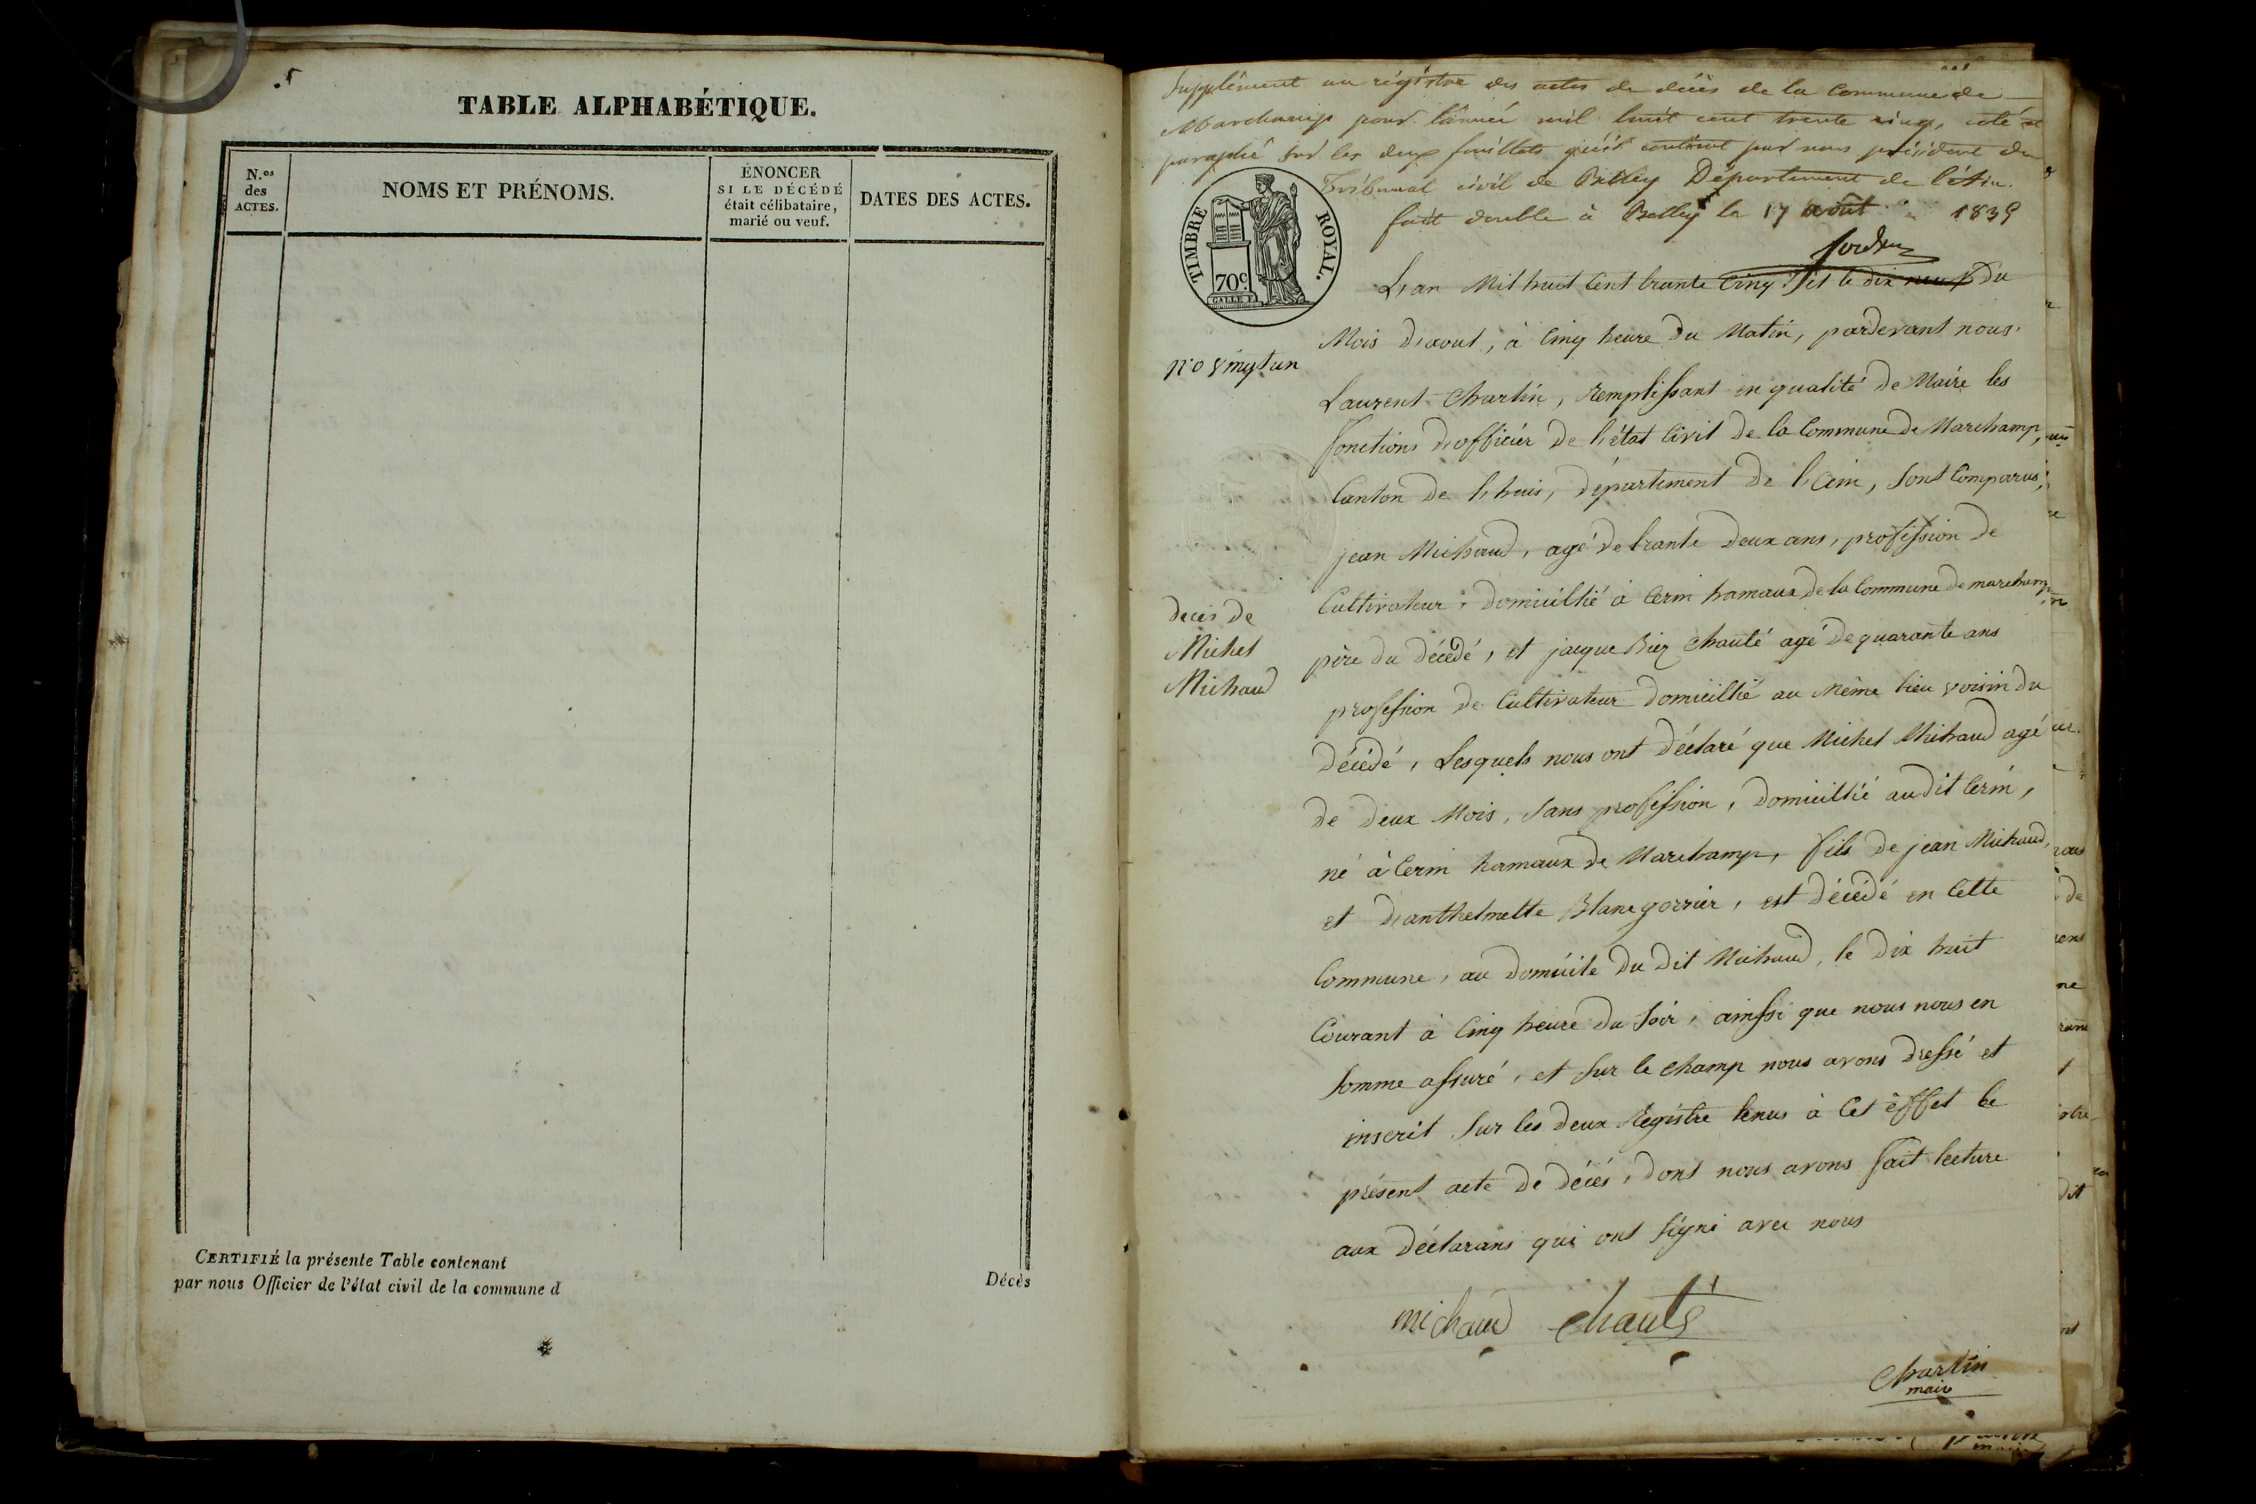 TABLE ALPHABÉTIQUE.
N.os
des
ACTES.
NOMS ET PRÉNOMS.
ÉNONCER
SI LE DÉCÉDÉ
était célibataire,
marié ou veuf.
DATES DES ACTES.
CERTIFIÉ la présente Table contenant
par nous Officier de l'état civil de la commune d
Décès
Supplément au régistre des actes de décès de la Commune de
Marchamp pour l'année mil huit cent trente cinq, coté et
paraphé sur les deux feuillets qu'il contient par nous président du
Tribunal civil de Belley Département de l'Ain.
fait double à Belley le 17 août 1835
TIMBRE ROYAL.
70c
L'an Mil huit Cent trante Cinq et le dix neuf du
Mois d'aout, à Cinq heure du Matin, pardevant nous
No vingt un
Laurent Charlin, remplissant en qualité de Maire les
fonctions d'officier de l'état Civil de la Commune de Marchamp,
Canton de l'huis, département de l'Ain, sont Comparus,
jean Michaud, agé de trante deux ans, profession de
Cultivateur, domicillié à Cerin hamaux de la Commune de marchamp
décès de
Michel
Michaud
père du décédé, et jacque Biez Chauté agé de quarante ans
profession de Cultivateur domicillié au Même lieu voisin du
décédé, Lesquels nous ont déclaré que Michel Michaud agé
de deux Mois, sans profession, domicillié au dit Cerin,
né à Cerin hamaux de Marchamp, fils de jean Michaud,
et d'anthelmette Blanc gorrier, est décédé en Cette
Commune, au domicile du dit Michaud, le dix huit
Courant à Cinq heure du soir, ainssi que nous nous en
somme assuré, et sur le champ nous avons dressé et
inscrit sur les deux Régistre tenus à Cet éffet le
présent acte de décés, dont nous avons fait lecture
aux déclarans qui ont signé avec nous
michaud Chauté
Charlin
maire